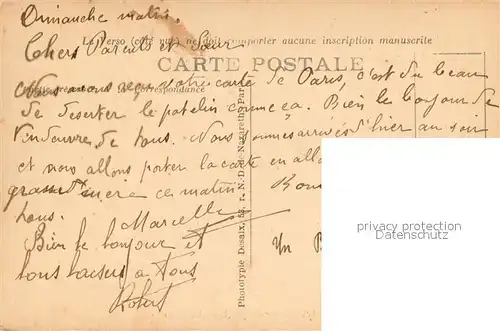 Dimanche matin.
Le Verso (côté vue) ne doit comporter aucune inscription manuscrite
Chers Parents et Sœur
CARTE POSTALE
Nous avons reçu votre carte de Paris, c'est du beau
Correspondance
de deserter le patelin comme ça. Bien le bonjour de
Vendeuvre de tous. Nous sommes arrivés d'hier au soir
et nous allons poter la carte en all
grand'mère ce matin
Bon
tous.
Marcelle
Un B
Bien le bonjour et
bons baisers a Tous
Robert
Phototypie Desaix, 53, r. N.-D. de Nazareth, Paris
privacy protection